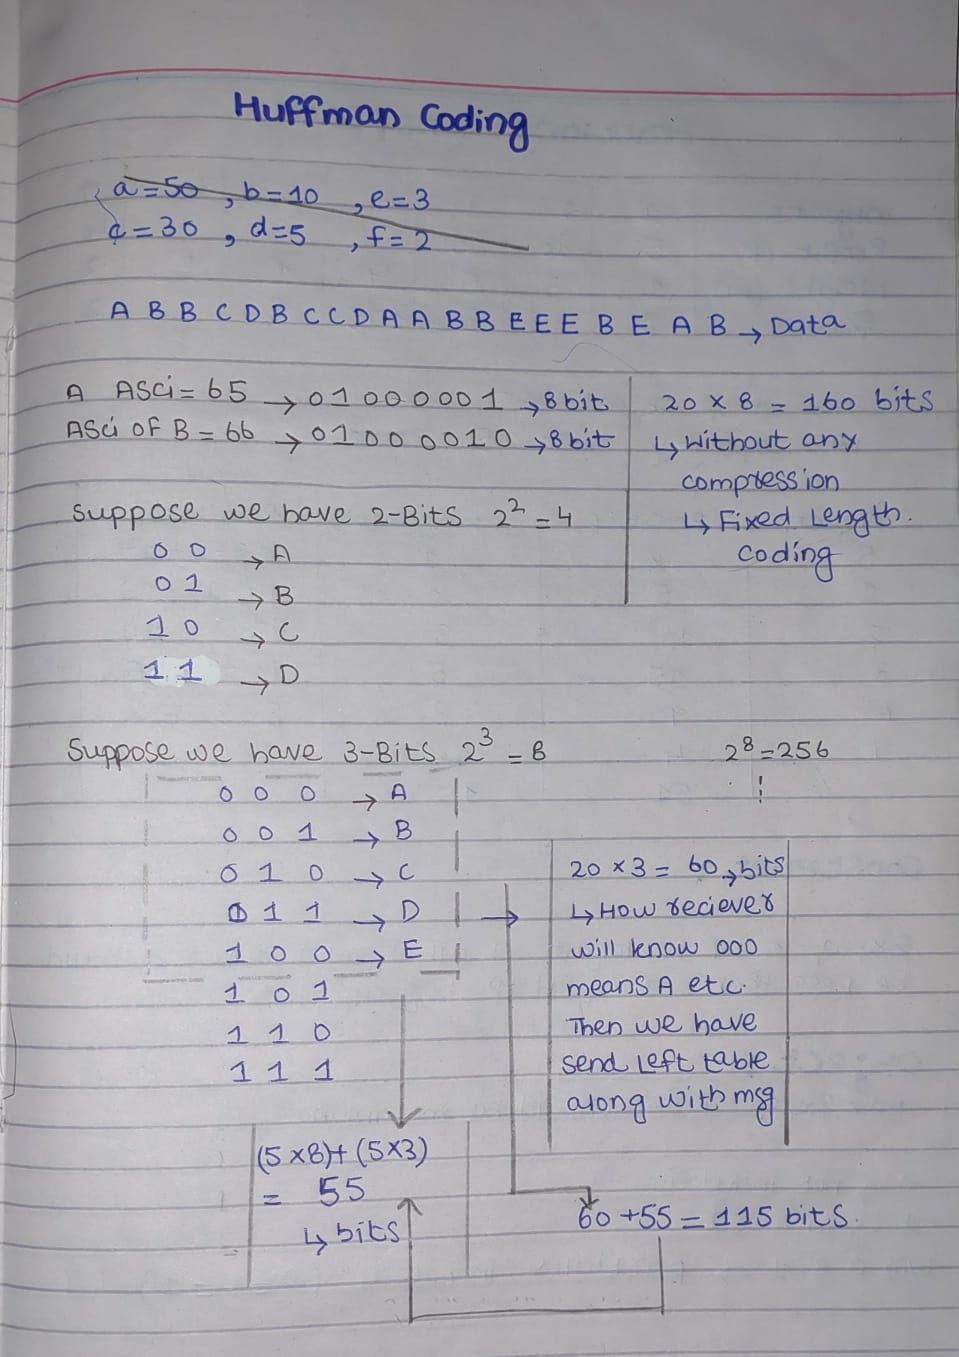 Huffman Coding
a=50, b=10, e=3
c=30, d=5, f=2
A B B C D B C C D A A B B E E E B E A B → Data
A ASCi = 65 → 01000001 → 8 bit
ASCi OF B = 66 → 01000010 → 8 bit
20 x 8 = 160 bits
↳ Without any
compression
↳ Fixed Length.
coding
Suppose we have 2-Bits 2² = 4
0 0 → A
0 1 → B
1 0 → C
1 1 → D
Suppose we have 3-Bits 2³ = 8
2⁸ = 256
0 0 0 → A
0 0 1 → B
0 1 0 → C
0 1 1 → D
1 0 0 → E
1 0 1
1 1 0
1 1 1
20 x 3 = 60 → bits
↳ How reciever
will know 000
means A etc.
Then we have
send Left table
along with msg
(5 x 8) + (5 x 3)
= 55
↳ bits
60 + 55 = 115 bits.